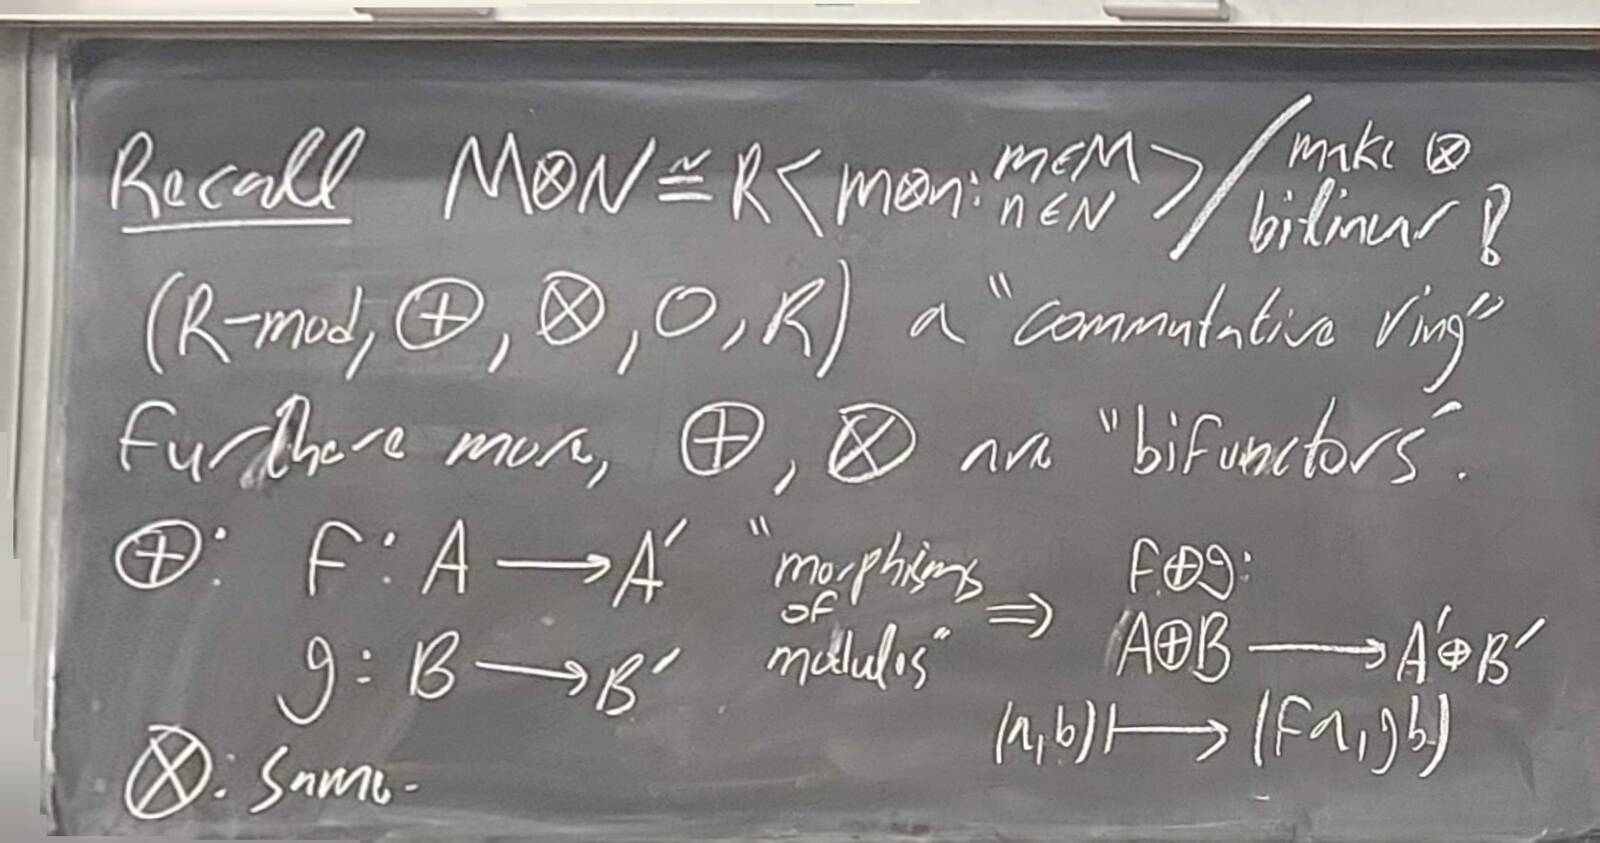 Recall M⊗N ≅ R<m⊗n: m∈M n∈N> / make ⊗ bilinear!
(R-mod, ⊕, ⊗, 0, R) a "commutative ring"
Furthere more, ⊕, ⊗ are "bifunctors".
⊕: F: A → A' "morphisms of modules" ⇒ F⊕g:
g: B → B' A⊕B → A'⊕B'
(a,b) ↦ (Fa, gb)
⊗: Same.